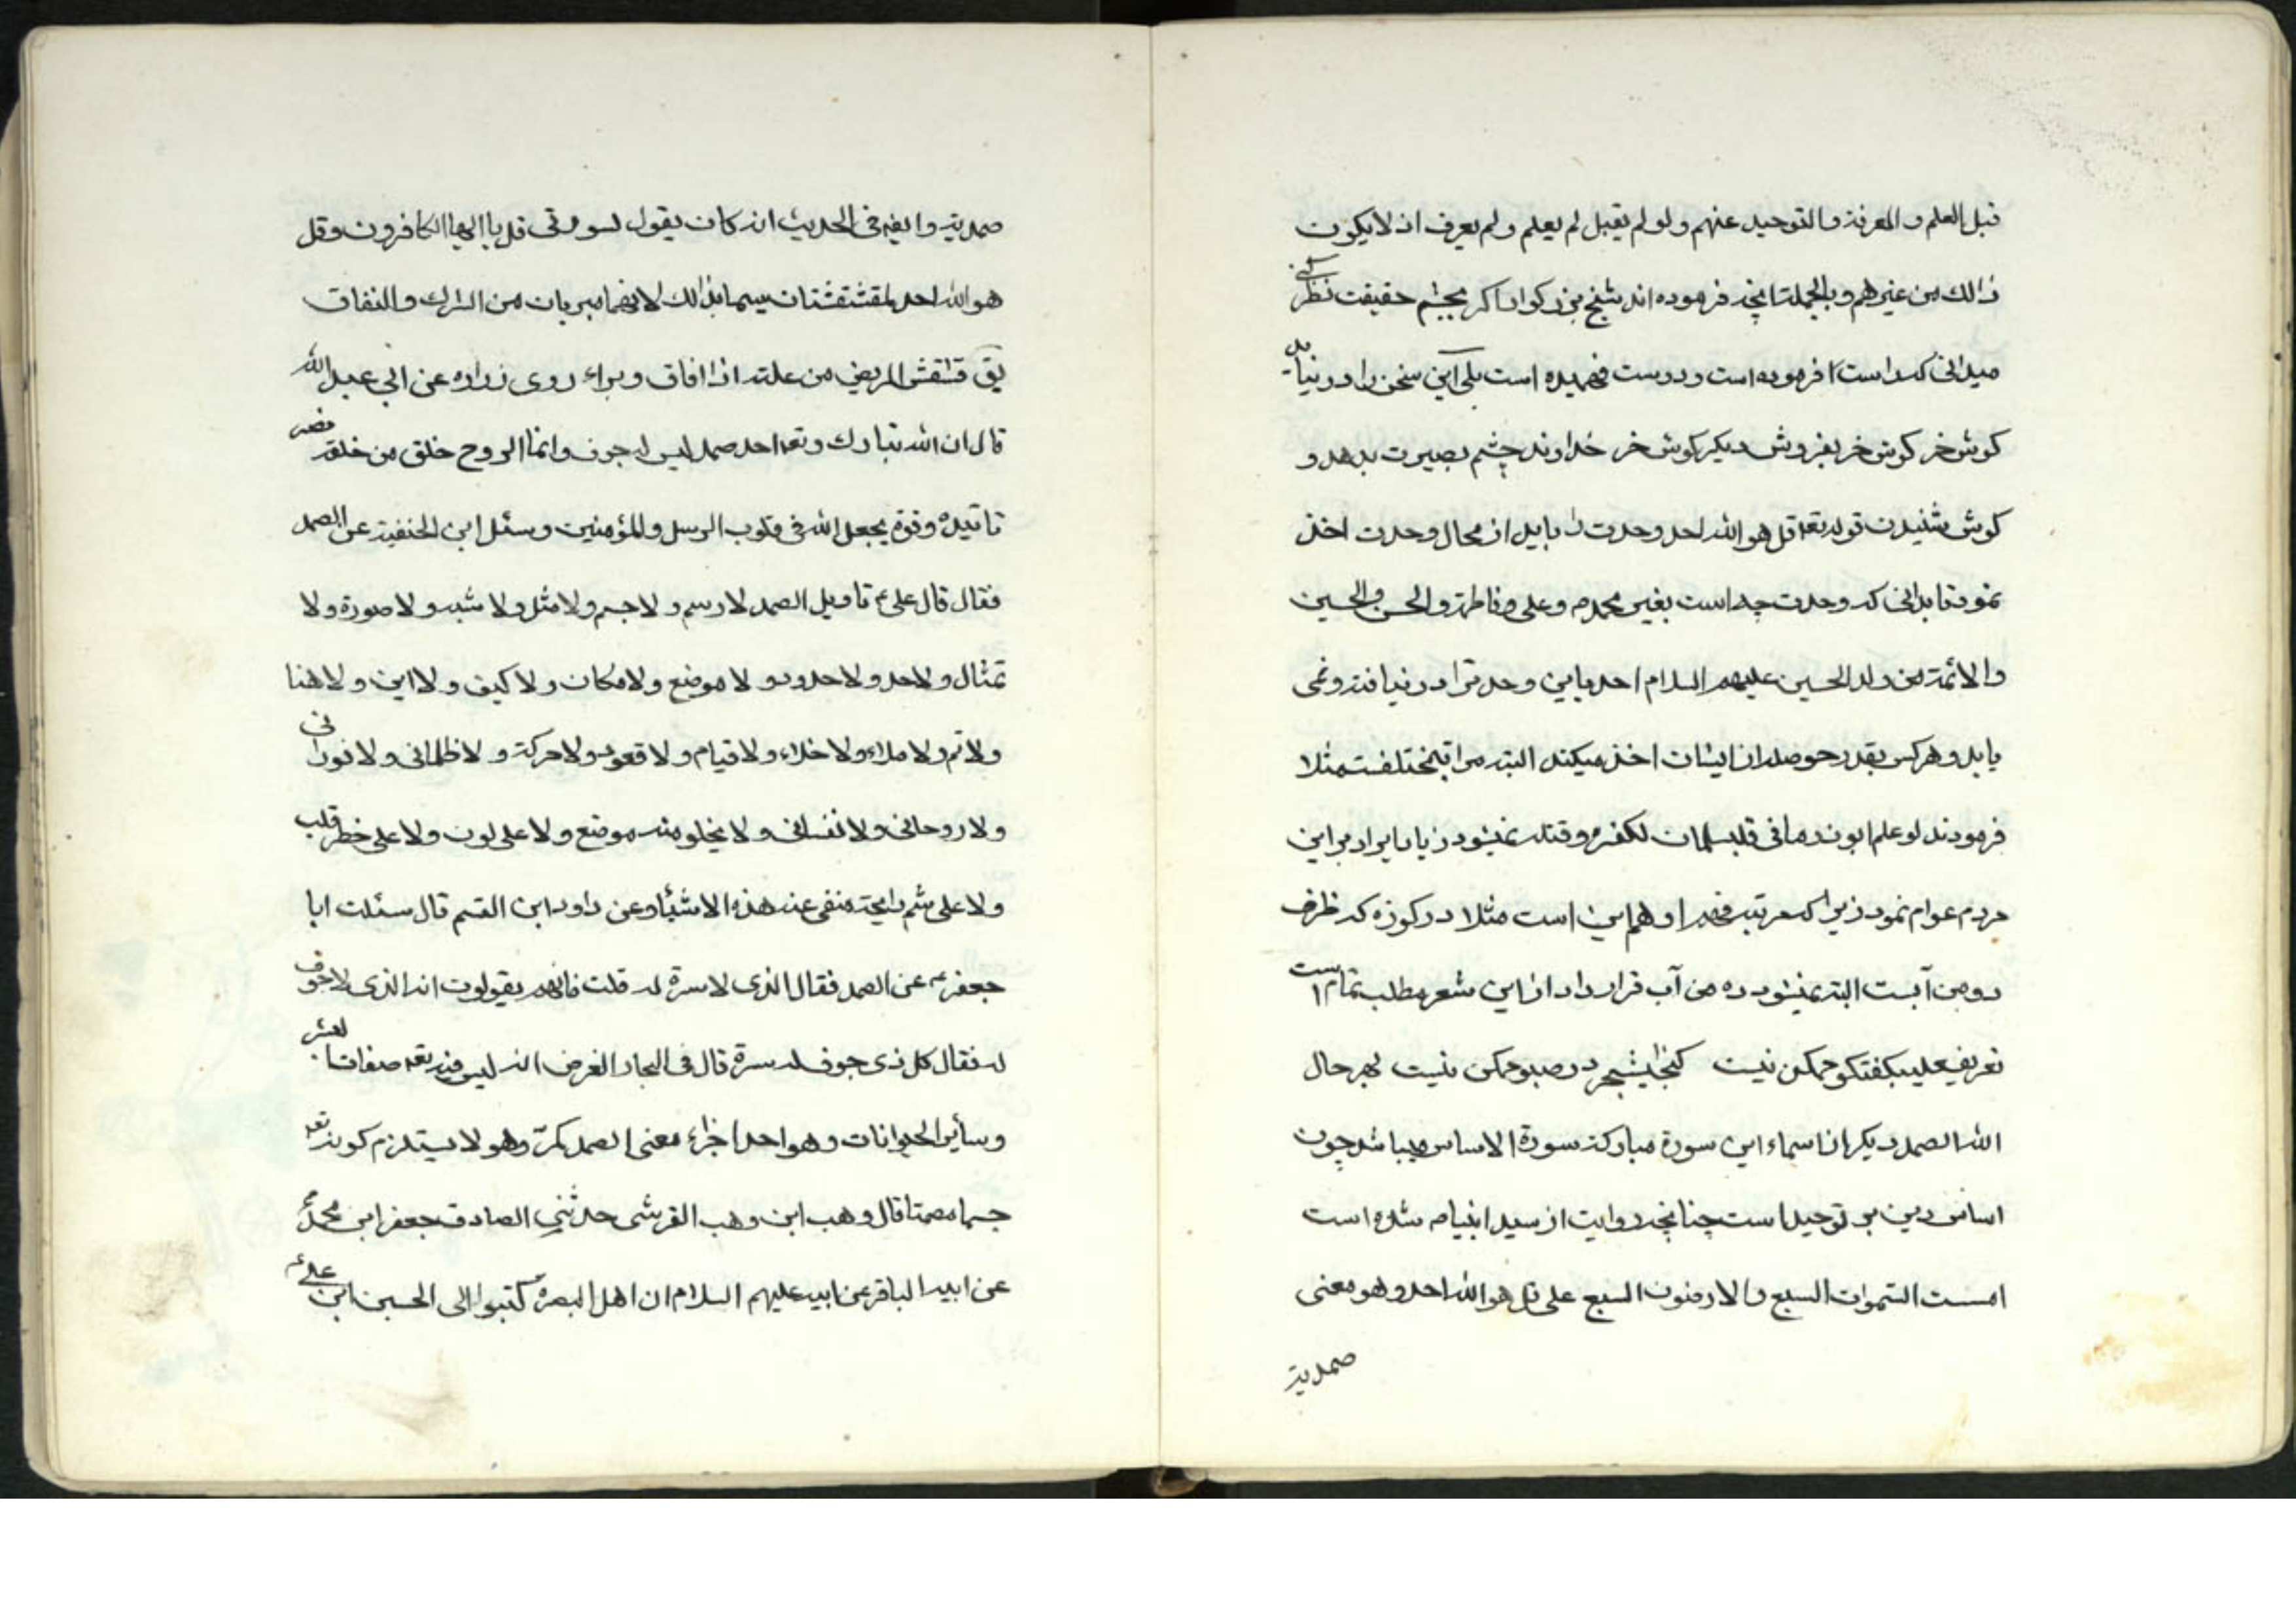 قبل العلم و المعرفة و التوحيد عنهم و لو لم يقبل لم يعلم و لم يعرف انه لا يكون
ذالك من غيرهم و بالجملة انچه فرموده اند شيخ بزركوار اكر بچشم حقيقت نظر كنى
ميدانى كه راست فرموده است و درست فهميده است بلى اين سخن را در نيابد
كوش خر كوش خر بفروش ديكر كوش خر خداوند چشم بصيرت بدهد و
كوش شنيدن قوله تعه قل هو الله احد وحدت را بايد از محال وحدت اخذ
نمود تا بدانى كه وحدت چه است بغير محمد ص و على و فاطمة و الحسن و الحسين
و الائمة من ولد الحسين عليهم السلام احد باين وحدت را در نيافته و نمى
يابد و هر كس بقدر حوصله از ايشان اخذ ميكند البته مراتب مختلفست مثلا
فرمودند لو علم ابوذر ما فى قلب سلمان لكفره و قتله نميشود زياد ايراد بر اين
مردم عوام نمود زيرا كه مرتبه فهم او همين است مثلا در كوزه كه ظرف
دو من آبست البته نميشود ده من آب قرار داد از اين شعر مطلب تمام است
تعريف على بكفتكو ممكن نيست كنجايش بحر در سبو ممكن نيست بهر حال
الله الصمد ديكر از اسماء اين سورة مباركه سورة الاساس ميباشد چون
اساس دين بر توحيد است چنانچه روايت از سيد انبيا ص شده است
اسست السموات السبع و الارضون السبع على قل هو الله احد و هو معنى
صمديته
صمديته و ايضه فى الحديث انه كان يقول لسورتى قل يا ايها الكافرون و قل
هو الله احد المقشقشتان سيما بذالك لانهما مبريان من الشرك و النفاق
يق قشقش المريض من علته اذا افاق و براء روى زراره عن ابى عبد الله
قال ان الله تبارك و تعه احد صمد ليس له جوف و انما الروح خلق من خلقه نصره
تاتيده و قوة يجعل الله فى قلوب الرسل و المؤمنين و سئل ابن الحنفية عن الصمد
فقال قال على ع تاويل الصمد لا رسم و لا جسم و لا مثل و لا شبه و لا صورة و لا
تمثال و لا حد و لا حدود و لا موضع و لا مكان و لا كيف و لا اين و لا هنا
و لا ثم و لا ملاء و لا خلاء و لا قيام و لا قعود و لا حركة و لا ظلمانى و لا نورانى
و لا روحانى و لا نفسانى و لا يخلو منه موضع و لا على لون و لا على خطر قلب
و لا على شم رايحة منفى عنه هذه الاشياء و عن داود ابن القسم قال سئلت ابا
جعفر ع عن الصمد فقال الذى لا سرة له قلت فانهم يقولون انه الذى لا جوف
له فقال كل ذى جوف له سرة قال فى البحار الغرض انه ليس فيه تعه صفات البشر
و سأير الحيوانات و هو احد اجزاء معنى الصمد كمر و هو لا يستلزم كونه تعه
جسما مصمتا قال وهب ابن وهب القرشى حدثنى الصادق جعفر ابن محمد ع
عن ابيه الباقر عن ابيه عليهم السلام ان اهل البصرة كتبوا الى الحسين ابن على ع